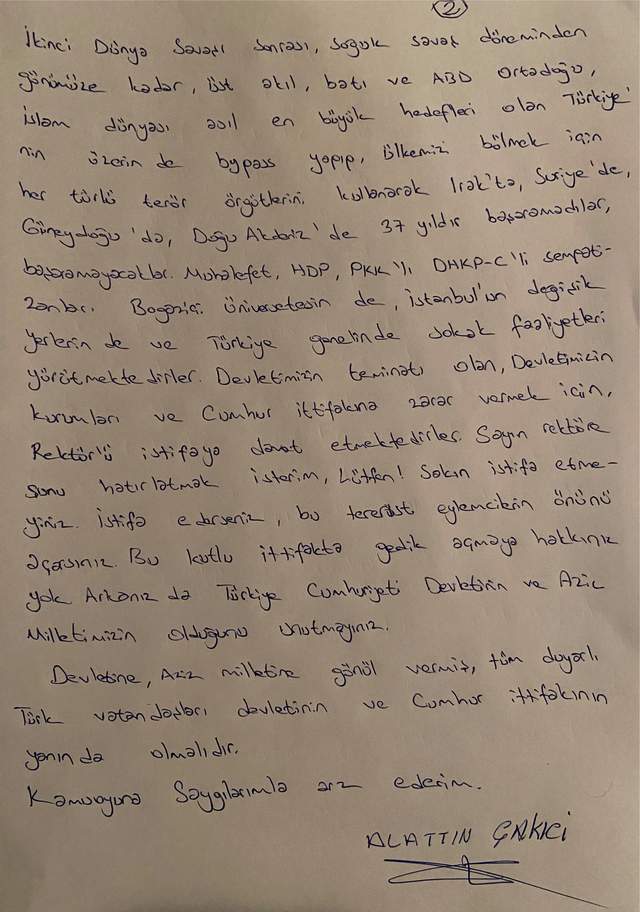 2
İkinci Dünya Savaşı sonrası, soğuk savaş döneminden
günümüze kadar, üst akıl, batı ve ABD Ortadoğu,
İslam dünyası asıl en büyük hedefleri olan Türkiye'
nin üzerin de bypass yapıp, ülkemizi bölmek için
her türlü terör örgütlerini kullanarak Irak'ta, Suriye'de,
Güneydoğu'da, Doğu Akdeniz'de 37 yıldır başaramadılar,
başaramayacaklar. Muhalefet, HDP, PKK'lı DHKP-C'li sempati-
zanları. Bogaziçi üniversitesin de, İstanbul'un değişik
yerlerin de ve Türkiye genelinde sokak faaliyetleri
yürütmektedirler. Devletimizin teminatı olan, Devletimizin
kurumları ve Cumhur ittifakına zarar vermek için,
Rektör'ü istifaya davet etmektedirler. Sayın rektöre
şunu hatırlatmak isterim, Lütfen! Sakın istifa etme-
yiniz. İstifa ederseniz, bu terörist eylemcilerin önünü
açarsınız. Bu kutlu ittifakta gedik açmaya hakkınız
yok Arkanız da Türkiye Cumhuriyeti Devletinin ve Aziz
Milletimizin olduğunu unutmayınız.
Devletine, Aziz milletine gönül vermiş, tüm duyarlı
Türk vatandaşları devletinin ve Cumhur ittifakının
yanın da olmalıdır.
Kamuoyuna Saygılarımla arz ederim.
ALATTİN ÇAKICI